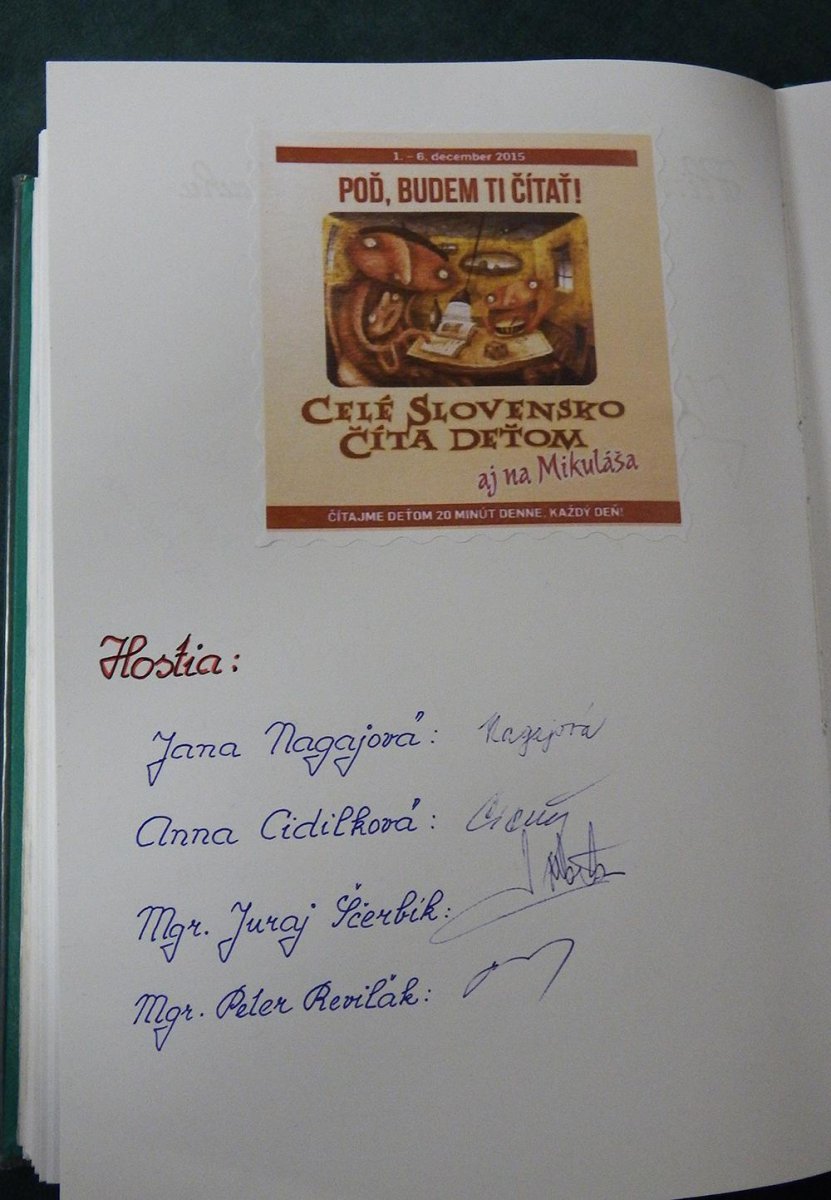 1. – 6. december 2015
POĎ, BUDEM TI ČÍTAŤ!
CELÉ SLOVENSKO
ČÍTA DEŤOM
aj na Mikuláša
ČÍTAJME DEŤOM 20 MINÚT DENNE, KAŽDÝ DEŇ!
Hostia:
Jana Nagajová: Nagajová
Anna Cidilková:
Mgr. Juraj Ščerbík:
Mgr. Peter Revilák: